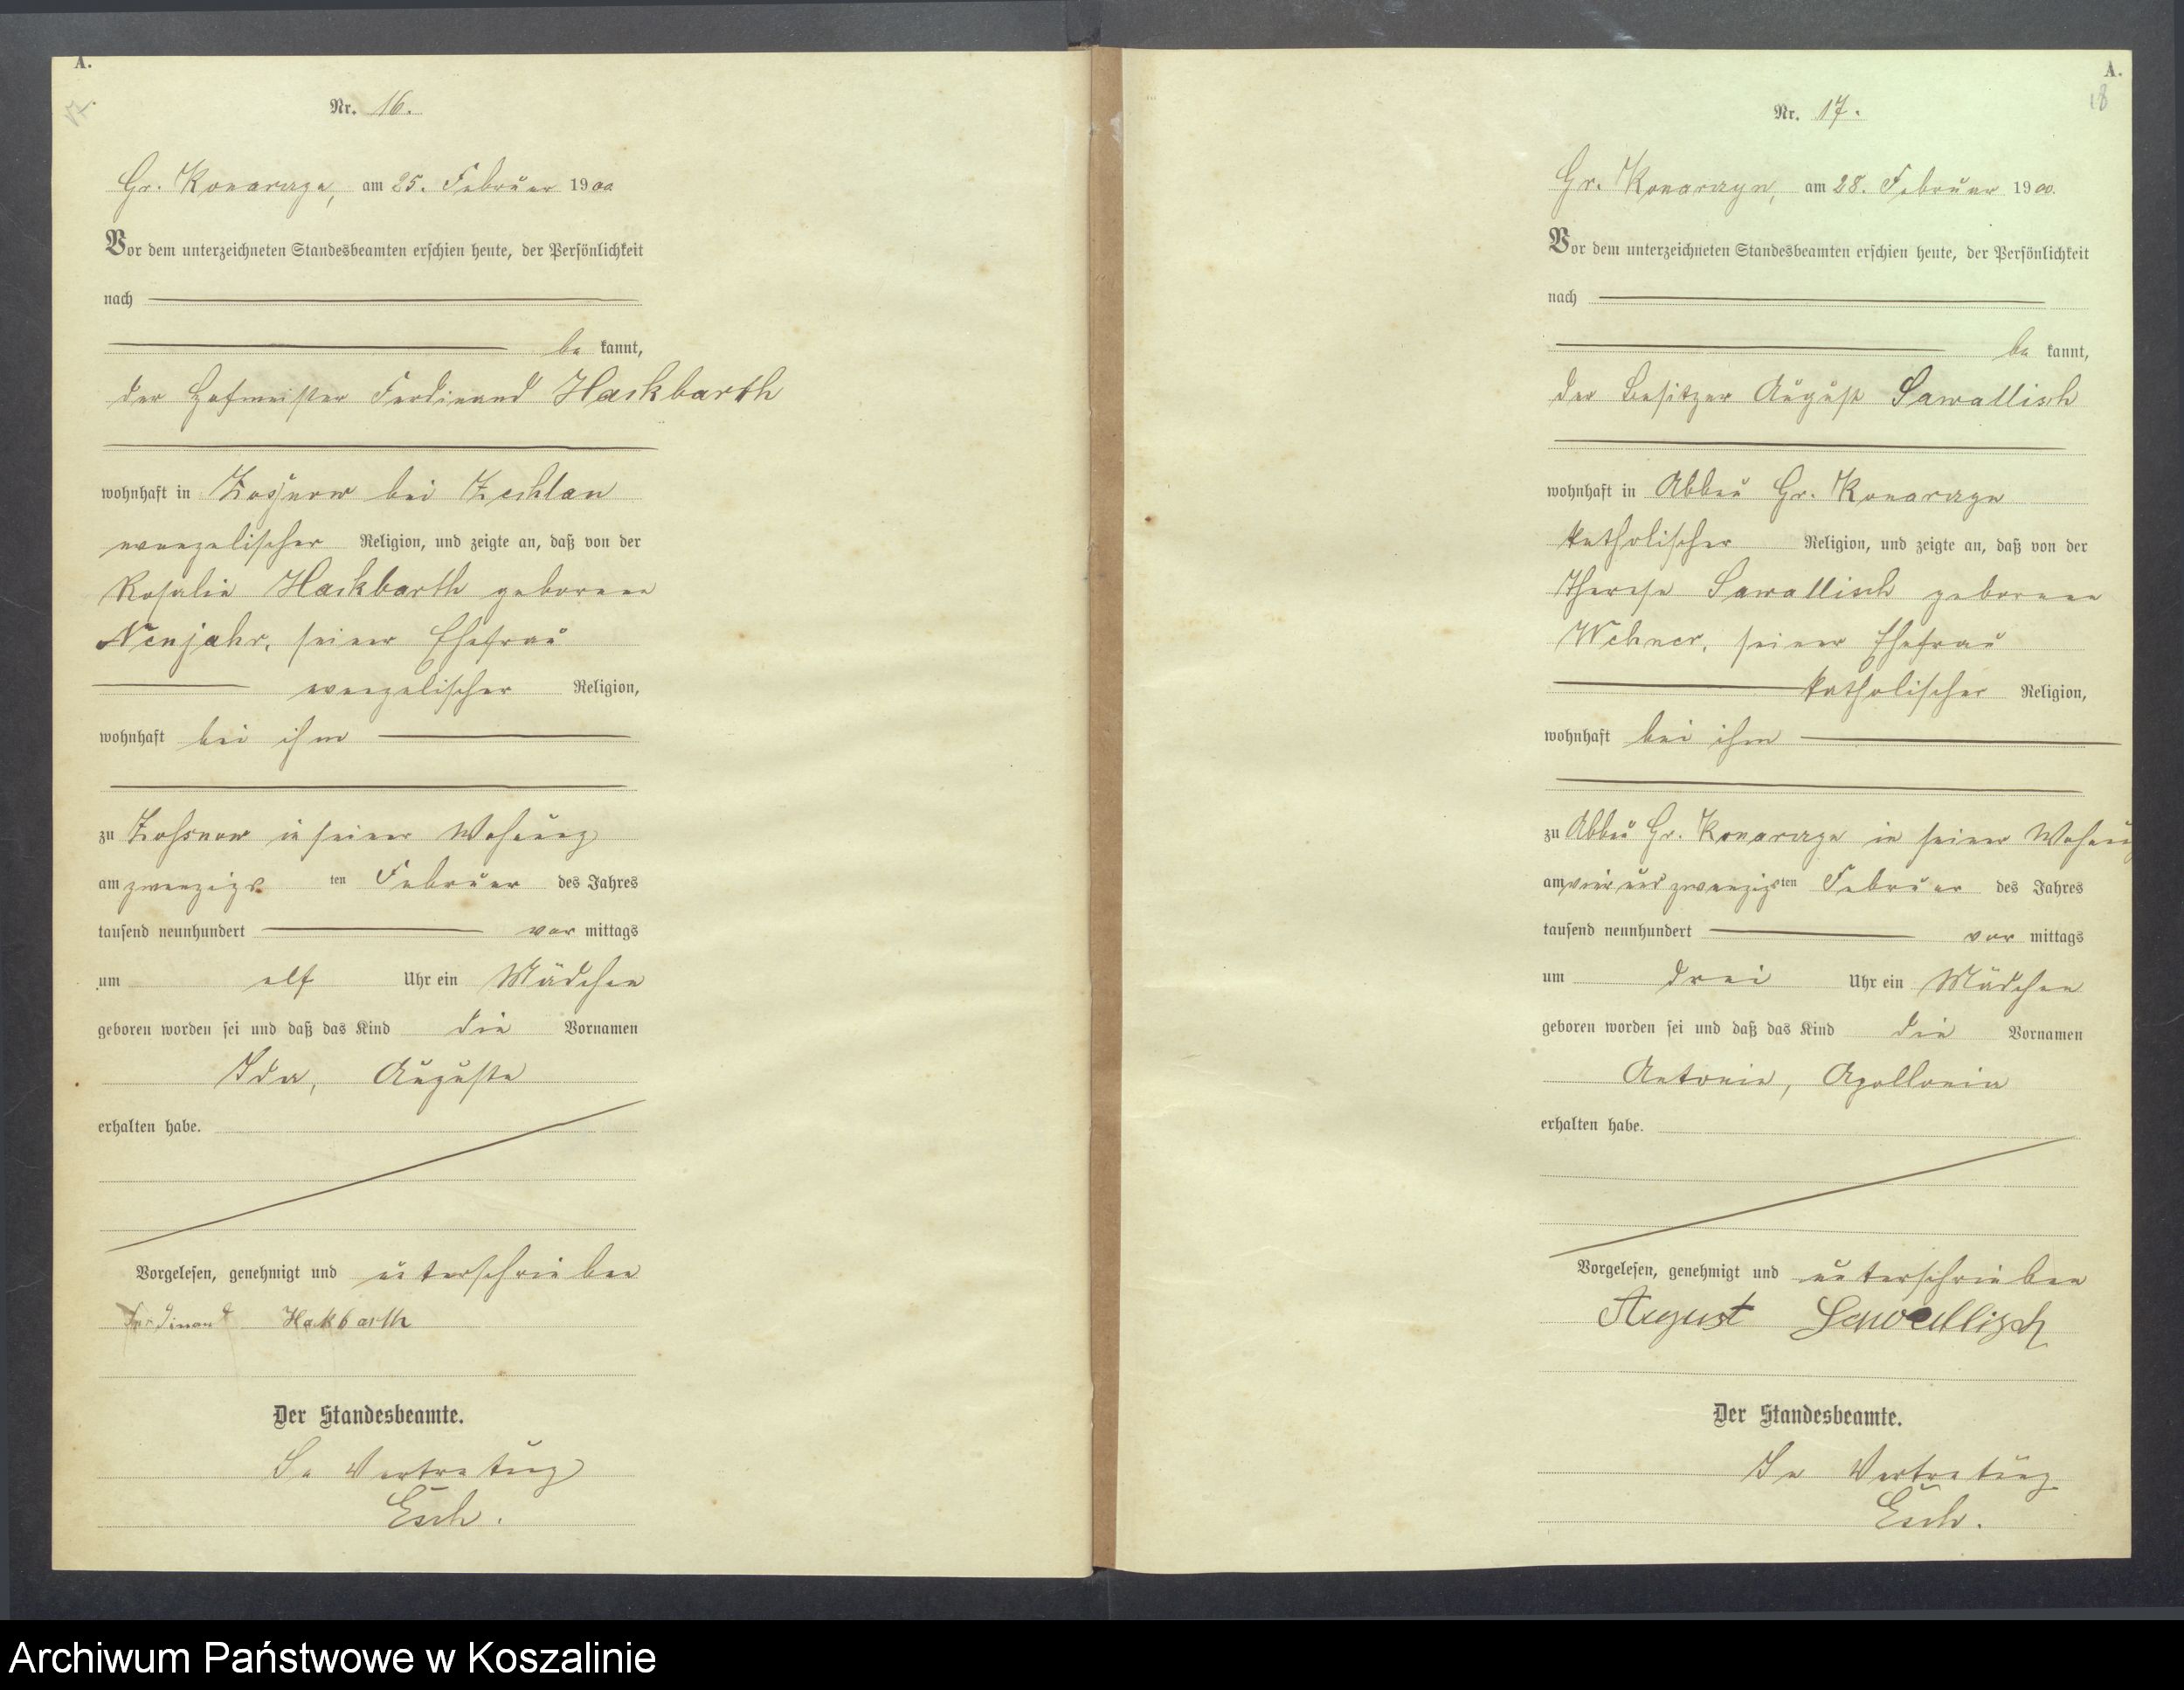 A.
17.
Nr. 16.
Gr. Konarczyn, am 25. Februar 1900
Vor dem unterzeichneten Standesbeamten erschien heute, der Persönlichkeit
nach
be kannt,
der Hofmeister Ferdinand Hackbarth
wohnhaft in bei Zechlau
evangelischer Religion, und zeigte an, daß von der
Rosalie Hackbarth geborene
Neujahr, seiner Ehefrau
evangelischer Religion,
wohnhaft bei ihm
zu in seiner Wohnung
am zwanzigs ten Februar des Jahres
tausend neunhundert vor mittags
um elf Uhr ein Mädchen
geboren worden sei und daß das Kind die Vornamen
Ida, Auguste
erhalten habe.
Vorgelesen, genehmigt und unterschrieben
Ferdinand Hakbarth
Der Standesbeamte.
In Vertretung
Esch.
A.
18
Nr. 17.
Gr. Konarczyn, am 28. Februar 1900.
Vor dem unterzeichneten Standesbeamten erschien heute, der Persönlichkeit
nach
be kannt,
der Besitzer August Sawallisch
wohnhaft in Abbau Gr. Konarczyn
katholischer Religion, und zeigte an, daß von der
Therese Sawallisch geborene
Wehner, seiner Ehefrau
katholischer Religion,
wohnhaft bei ihm
zu Abbau Gr. Konarczyn in seiner Wohnung
am vier und zwanzigsten Februar des Jahres
tausend neunhundert vor mittags
um drei Uhr ein Mädchen
geboren worden sei und daß das Kind die Vornamen
Antonie, Apollonia
erhalten habe.
Vorgelesen, genehmigt und unterschrieben
August Sawallisch
Der Standesbeamte.
In Vertretung
Esch.
Archiwum Państwowe w Koszalinie